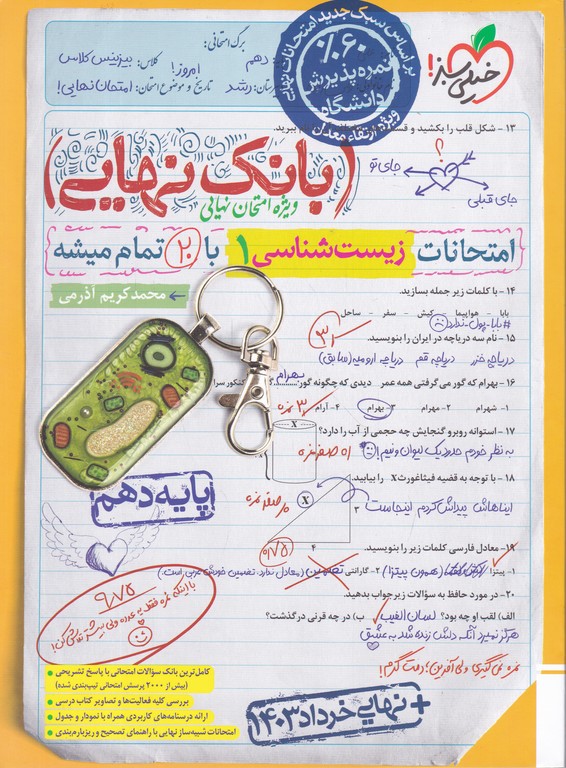 برگ امتحانی:
دهم
کلاس: بیزینس کلاس
امروز!
رشد
تاریخ و موضوع امتحان: امتحان نهایی!
بر اساس سبک جدید امتحانات نهایی
٪۶۰
نمره پذیرش
دانشگاه
ویژه ارتقاء معدل
خیلی سبز!
۱۳ - شکل قلب را بکشید و
ببرید.
؟
جای تو
جای قبلی
(بانک نهایی)
ویژه امتحان نهایی
امتحانات زیست‌شناسی ۱ با ۲۰ تمام میشه
محمدکریم آذرمی
۱۴ - با کلمات زیر جمله بسازید.
بابا - هواپیما - کیش - سفر - ساحل
#بابا_پول_ندارد
۱۵ - نام سه دریاچه در ایران را بنویسید.
دریاچه خزر دریاچه قم دریاچه ارومیه (سابق)
۱۶ - بهرام که گور می‌گرفتی همه عمر دیدی که چگونه گور بهرام گرفت
۱- شهرام ۲- مهرام ۳- بهرام ۴- آرام
۳ نمره
۱۷ - استوانه روبرو گنجایش چه حجمی از آب را دارد؟
X
به نظر خودم حدود یک لیوان و نیم!
۱۸ - با توجه به قضیه فیثاغورث X را بیابید.
ایناهاش پیداش کردم اینجاست
X
۳
۴
۱۹ - معادل فارسی کلمات زیر را بنویسید.
۱- پیتزا (همون پیتزا) ۲- گارانتی تضمین (معادل ندارد. تضمین خودش عربی است.)
۲۰ - در مورد حافظ به سؤالات زیر جواب بدهید.
الف) لقب او چه بود؟ لسان الغیب ب) در چه قرنی درگذشت؟
هرگز نمیرد آنکه دلش زنده شد به عشق
پایه دهم
۹/۷۵
نمره نمی‌گیری ولی آفرین؛ دمت گرم!
کامل‌ترین بانک سؤالات امتحانی با پاسخ تشریحی
(بیش از ۲۰۰۰ پرسش امتحانی تیپ‌بندی شده)
بررسی کلیه فعالیت‌ها و تصاویر کتاب درسی
ارائه درسنامه‌های کاربردی همراه با نمودار و جدول
امتحانات شبیه‌ساز نهایی با راهنمای تصحیح و ریزبارم‌بندی
+ نهایی خرداد ۱۴۰۳